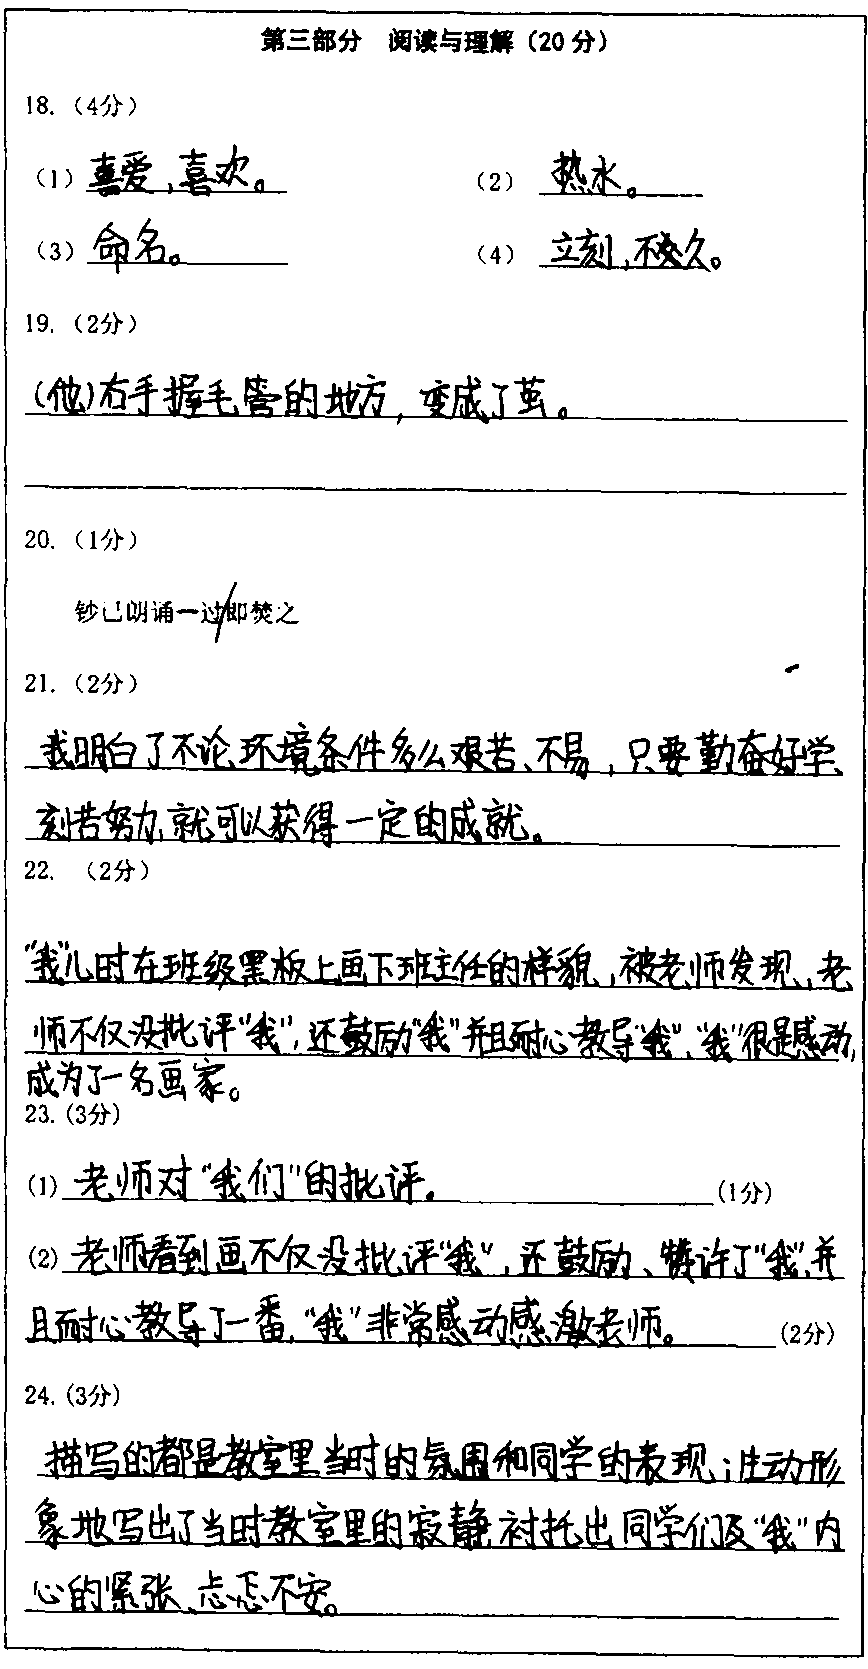 第三部分 阅读与理解（20分）
18.（4分）
（1）喜爱,喜欢。 （2）热水。
（3）命名。 （4）立刻,不久。
19.（2分）
(他)右手握毛管的地方，变成了茧。
20.（1分）
钞已朗诵一过/即焚之
21.（2分）
我明白了不论环境条件多么艰苦、不易，只要勤奋好学、
刻苦努力,就可以获得一定的成就。
22.（2分）
"我"儿时在班级黑板上画下班主任的样貌，被老师发现，老
师不仅没批评"我"，还鼓励"我"并且耐心教导"我"，"我"很是感动，
成为了一名画家。
23.(3分)
(1) 老师对"我们"的批评。(1分)
(2) 老师看到画不仅没批评"我"，还鼓励、赞许了"我"，并
且耐心教导了一番，"我"非常感动感激老师。(2分)
24.(3分)
描写的都是教室里当时的氛围和同学的表现；生动形
象地写出了当时教室里的寂静,衬托出同学们及"我"内
心的紧张、忐忑不安。